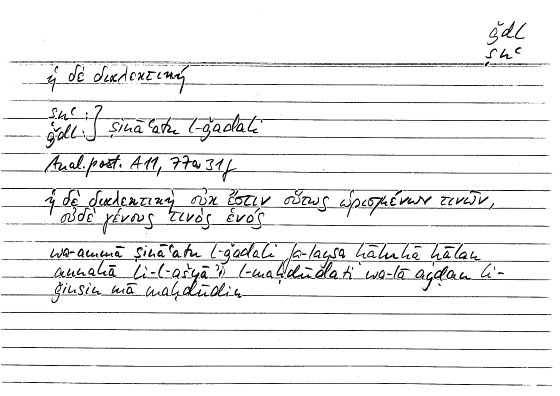 ǧdl
ṣnʿ
ἡ δὲ διαλεκτική
ṣnʿ :
ǧdl : } ṣināʿatu l-ǧadali
Anal. post. A 11, 77a 31f
ἡ δὲ διαλεκτικὴ οὐκ ἔστιν οὕτως ὡρισμένων τινῶν,
οὐδὲ γένους τινὸς ἑνός
wa-ammā ṣināʿatu l-ǧadali fa-laysa hāḏihī ḥālan
annahā li-l-ašyāʾi l-maḥdūdati wa-lā ayḍan li-
ǧinsin mā maḥdūdin